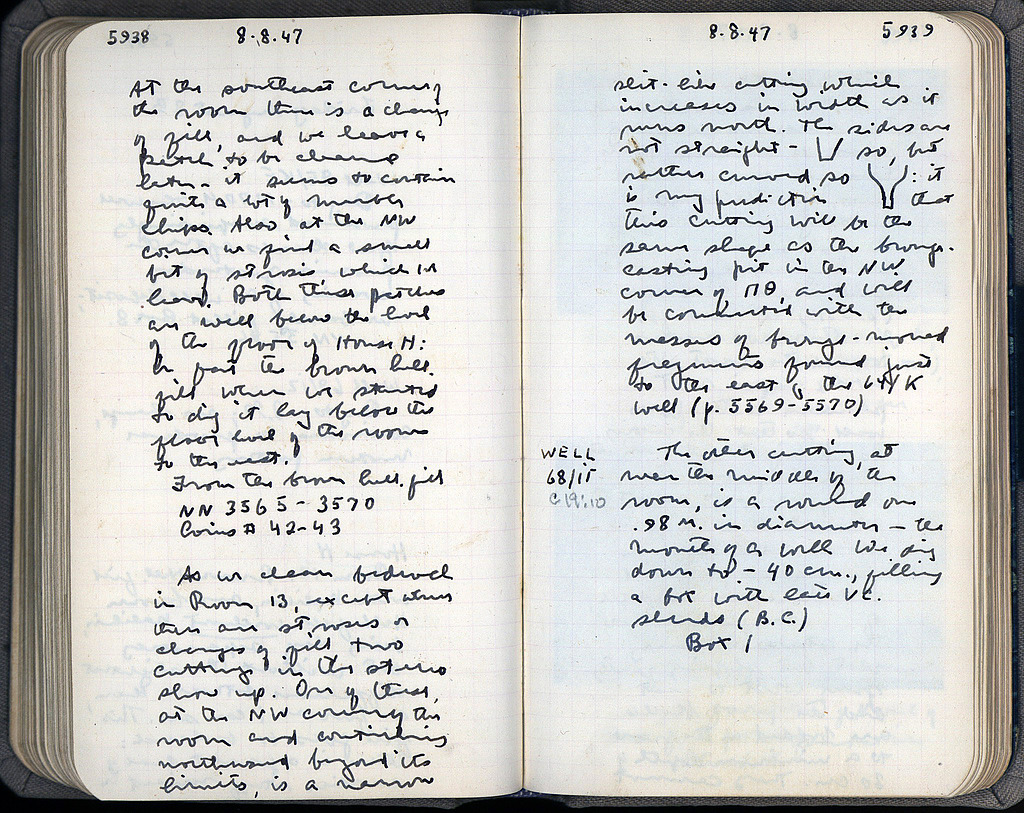 5938 8.8.47
At the southeast corner of
the room there is a change
of fill, and we leave a
patch to be cleaned
later - it seems to contain
quite a lot of marble
chips. Also at the NW
corner we find a small
bit of strosis which is
leave. Both these patches
are well below the level
of the floor of House H:
in fact the brown
fill when we started
to dig it lay below the
floor level of the room
to the west.
From the brown fill
NN 3565-3570
Coins # 42-43
As we clean bedrock
in Room 13, except where
there are strosis or
changes of fill two
cuttings in the stereo
show up. One of these,
at the NW corner of the
room and continuing
northward beyond its
limits, is a narrow
8.8.47 5939
slit-like cutting which
increases in width as it
runs north. The sides are
not straight - so, but
rather curved so : it
is my prediction that
this cutting will be the
same shape as the bronze-
casting pit in the NW
corner of ΠΘ, and will
be connected with the
masses of bronze-
fragments found just
to the east of the 64/K
well (p. 5569-5570)
WELL
68/ΙΕ
C 19:10
The other cutting, at
near the middle of the
room, is a round one
.98 M. in diameter - the
mouth of a well. We dig
down to - 40 cm., filling
a box with late Vc.
sherds (B.C.)
Box 1